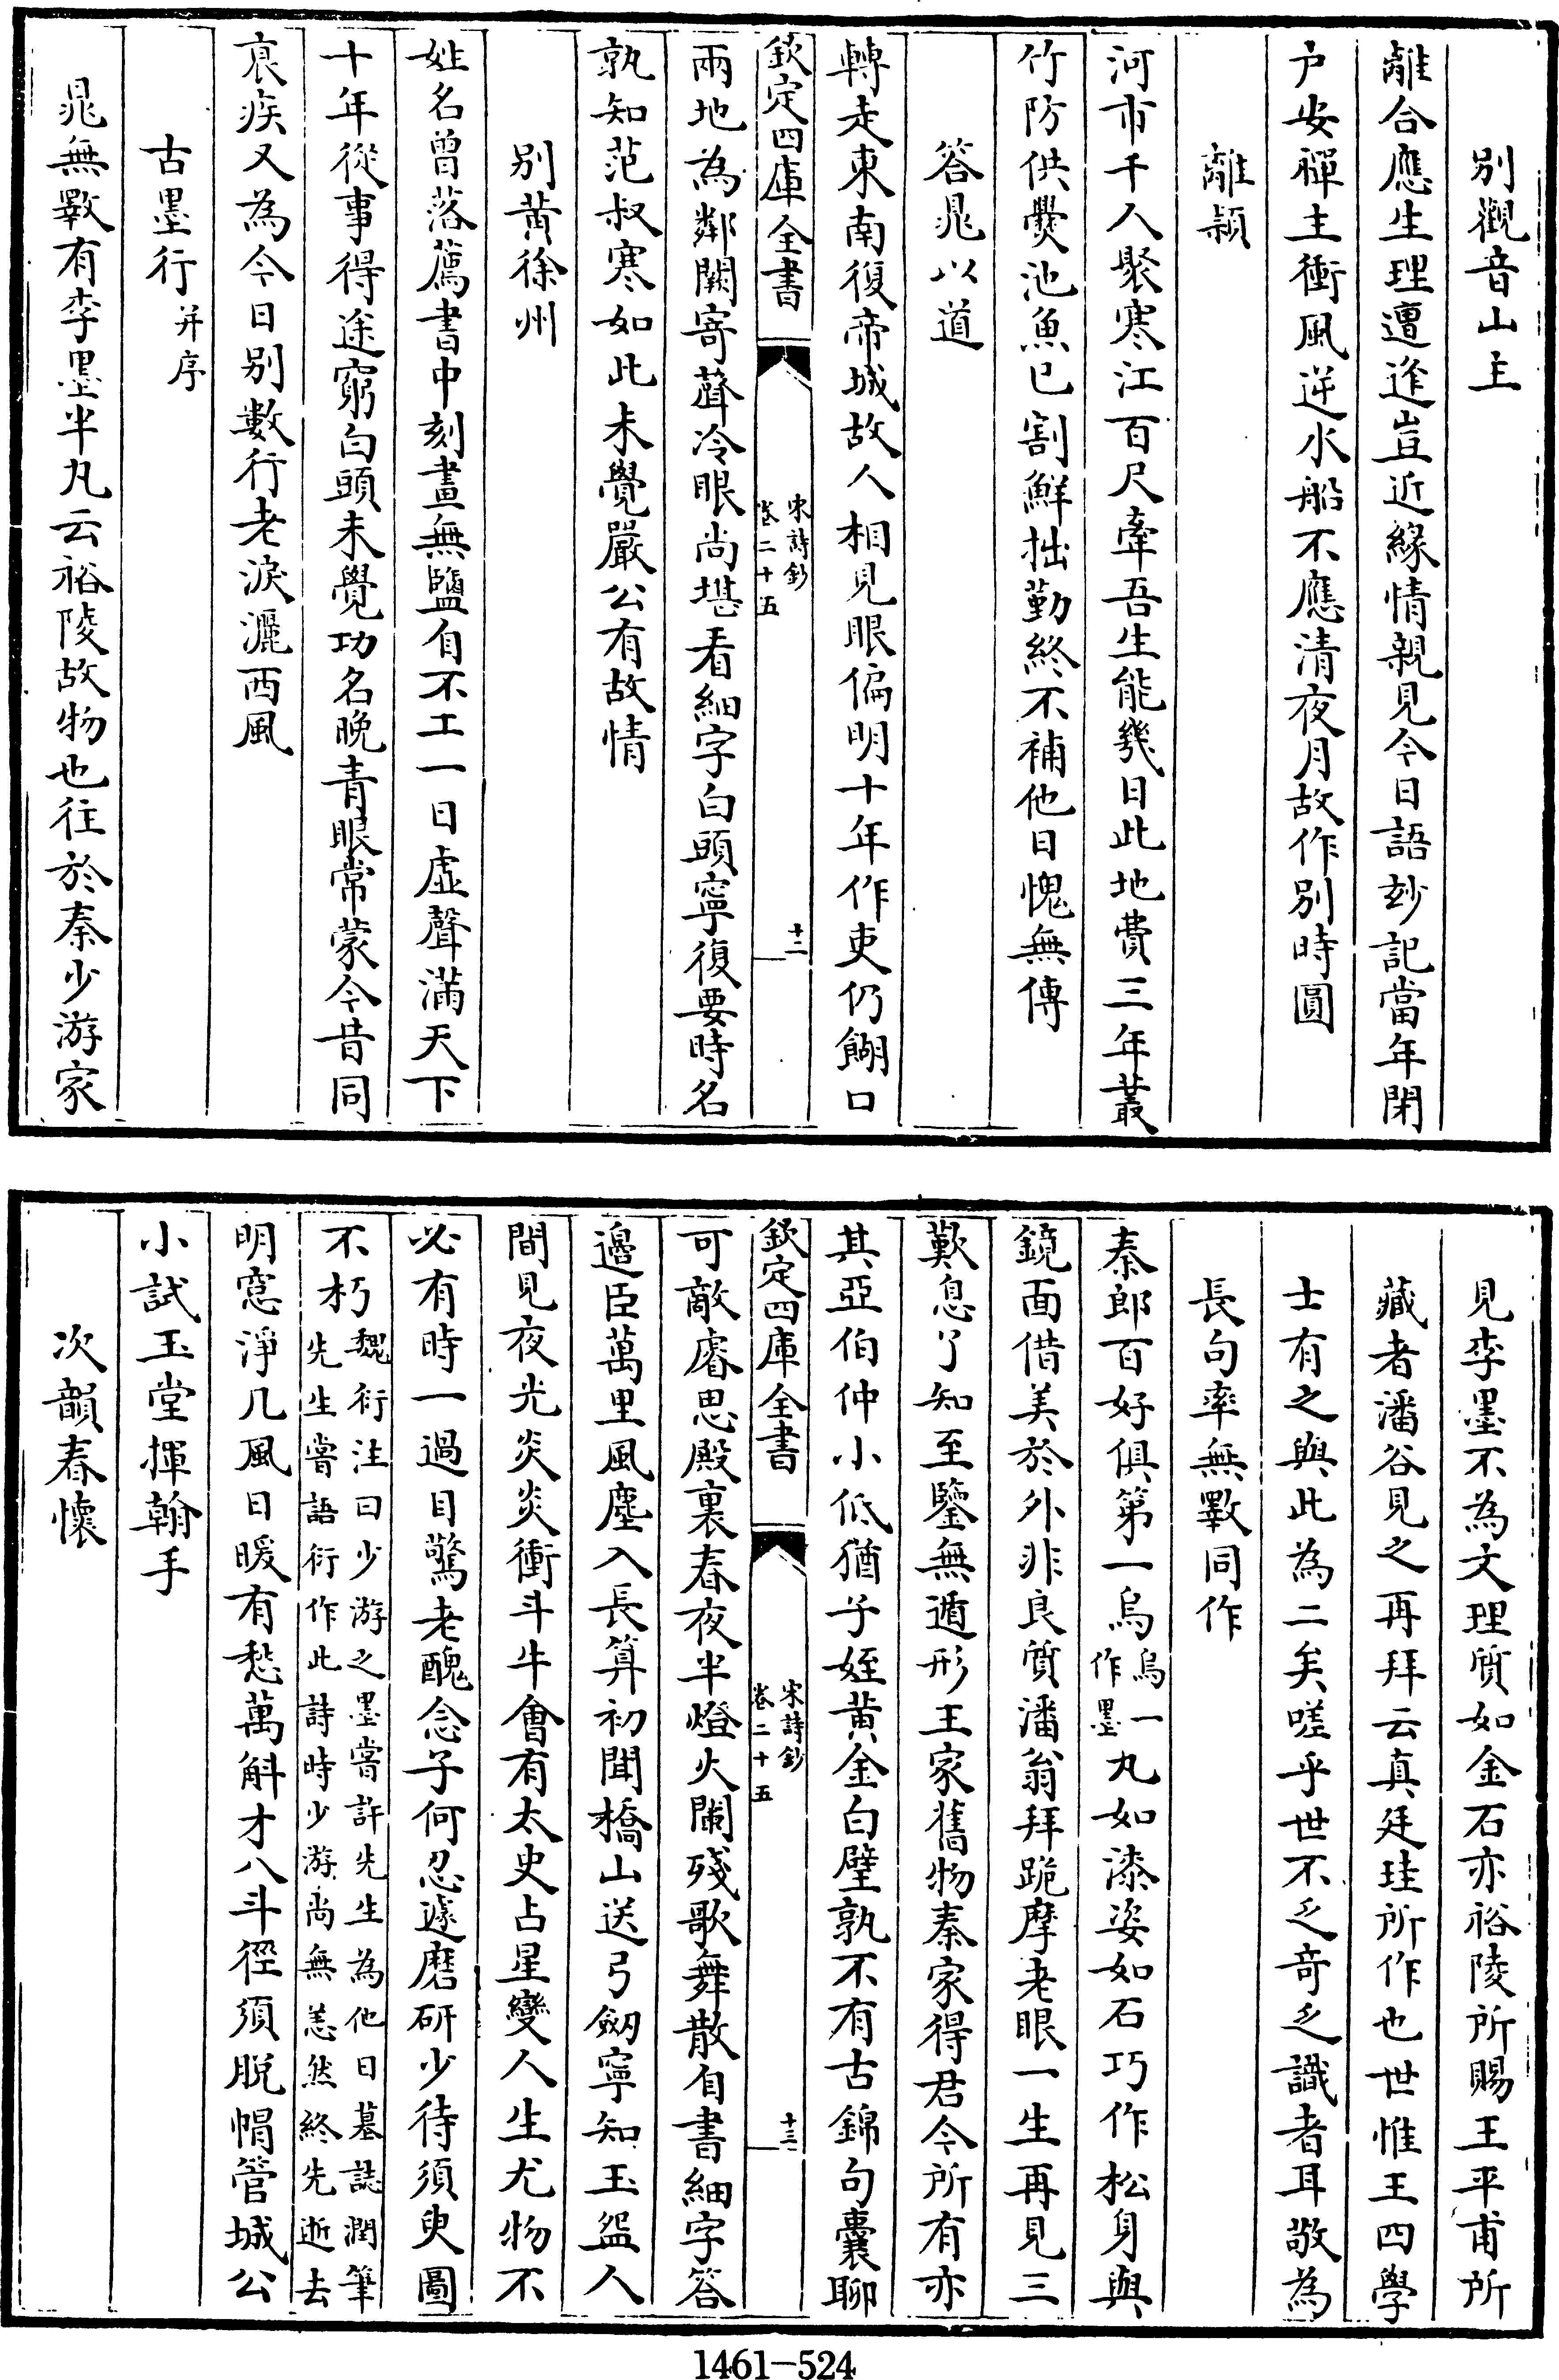 別觀音山主
離合應生理遭逢豈近緣情親見今日語玅記當年閉
户安禪主衝風逆水船不應清夜月故作别時圓
離潁
河市千人聚寒江百尺牽吾生能幾日此地費三年叢
竹防供㸑池魚已割鮮拙勤終不補他日愧無傳
答晁以道
轉走東南復帝城故人相見眼偏明十年作吏仍餬口
欽定四庫全書
宋詩鈔
卷二十五
十二
兩地為鄰闕寄聲冷眼尚堪看細字白頭寧復要時名
孰知范叔寒如此未覺嚴公有故情
别黄徐州
姓名曾落薦書中刻畫無鹽自不工一日虚聲滿天下
十年從事得途窮白頭未覺功名晚青眼常蒙今昔同
衰疾又為今日别數行老淚灑西風
古墨行并序
晁無斁有李墨半丸云裕陵故物也往於秦少游家
見李墨不為文理質如金石亦裕陵所賜王平甫所
藏者潘谷見之再拜云真廷珪所作也世惟王四學
士有之與此為二矣嗟乎世不乏奇乏識者耳敬為
長句率無斁同作
秦郎百好俱第一烏烏一作墨丸如漆姿如石巧作松身與
鏡面借美於外非良質潘翁拜跪摩老眼一生再見三
歎息了知至鑒無遁形王家舊物秦家得君今所有亦
其亞伯仲小低猶子姪黄金白璧孰不有古錦句囊聊
欽定四庫全書
宋詩鈔
卷二十五
十三
可敵睿思殿裏春夜半燈火闌殘歌舞散自書細字答
邉臣萬里風塵入長算初聞橋山送弓劒寧知玉盌人
間見夜光炎炎衝斗牛會有太史占星變人生尤物不
必有時一過目驚老醜念子何忍遽磨研少待須臾圖
不朽魏衍注曰少游之墨嘗許先生為他日墓誌潤筆先生嘗語衍作此詩時少游尚無恙然終先逝去
明窓淨几風日暖有愁萬斛才八斗徑須脱帽管城公
小試玉堂揮翰手
次韻春懷
1461-524